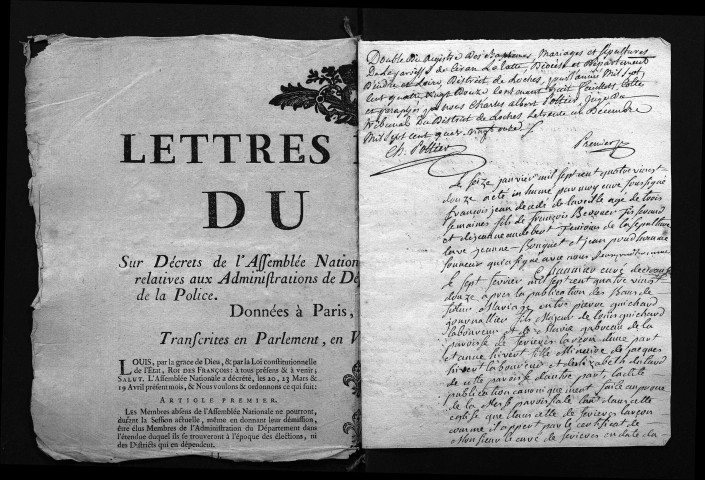 LETTRES
DU
Sur Décrets de l'Assemblée Nation
relatives aux Administrations de Dé
de la Police.
Données à Paris,
Transcrites en Parlement, en V
LOUIS, par la grace de Dieu, & par la Loi constitutionnelle
de l'État, ROI DES FRANÇOIS: à tous présens & à venir;
SALUT. L'Assemblée Nationale a décrété, les 20, 23 Mars &
19 Avril présent mois, & Nous voulons & ordonnons ce qui suit:
ARTICLE PREMIER.
LES Membres absens de l'Assemblée Nationale ne pourront,
durant la Session actuelle, même en donnant leur démission,
être élus Membres de l'Administration du Département dans
l'étendue duquel ils se trouveront à l'époque des élections, ni
des Districts qui en dépendent.
Double du Registre des Baptemes, Mariages et sepultures
de la paroisse de Ciran La Latte, Diocese et Departement
D'indre et Loire, District de Loches, pour l'année Mil sept
Cent quatre vingt Douze contenant huit feuillets Cotté
et paraphé par nous Charles albert Pottier, juge du
Tribunal du District de Loches Le trente un Décembre
Mil sept cent quatre vingt onze
Ch. Pottier
Premier
Le seize janvier mil sept cent quatre vingt
douze a été inhumé par moy curé soussigné
françois jean décédé de la veille agé de trois
semaines fils de françois
et de jeanne Témoins de la sepulture
jeanne Bouquet et jean prudhomme
sonneur qui a signé avec nous
curé de Ciran
Le sept fevrier mil sept cent quatre vingt
douze après la publication des Bans de
futur Mariage entre pierre guichard
journallier fils Majeur de louis guichard
laboureur et de Marie de la
paroisse de ferieres d'une part
et anne hivert fille Mineure de jacques
hivert laboureur et d'elizabeth
de cette paroisse d'autre part, la dite
publication canoniquement faite au prone
de la Messe paroissiale tant dans cette
eglise que dans celle de ferieres larçon
comme il appert par le certificat de
Monsieur le curé de ferieres en date du